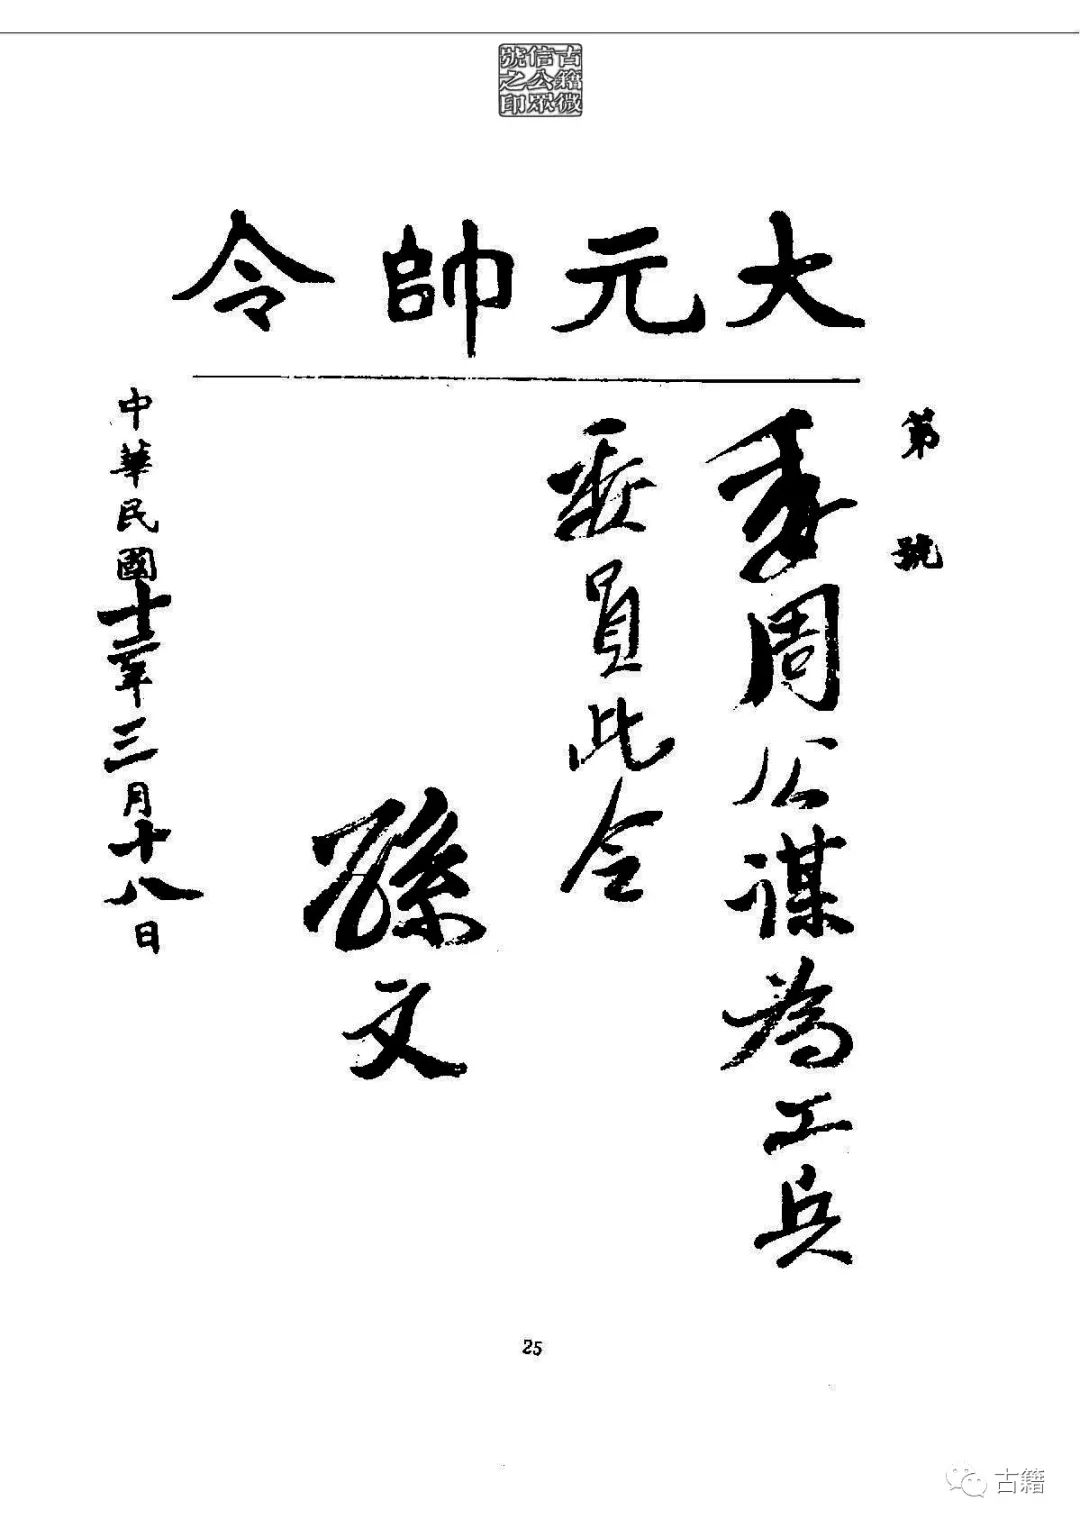 古籍微
信公眾
號之印
大元帥令
第　號
委周公謀為工兵
委員此令
孫文
中華民國十二年三月十八日
25
古籍